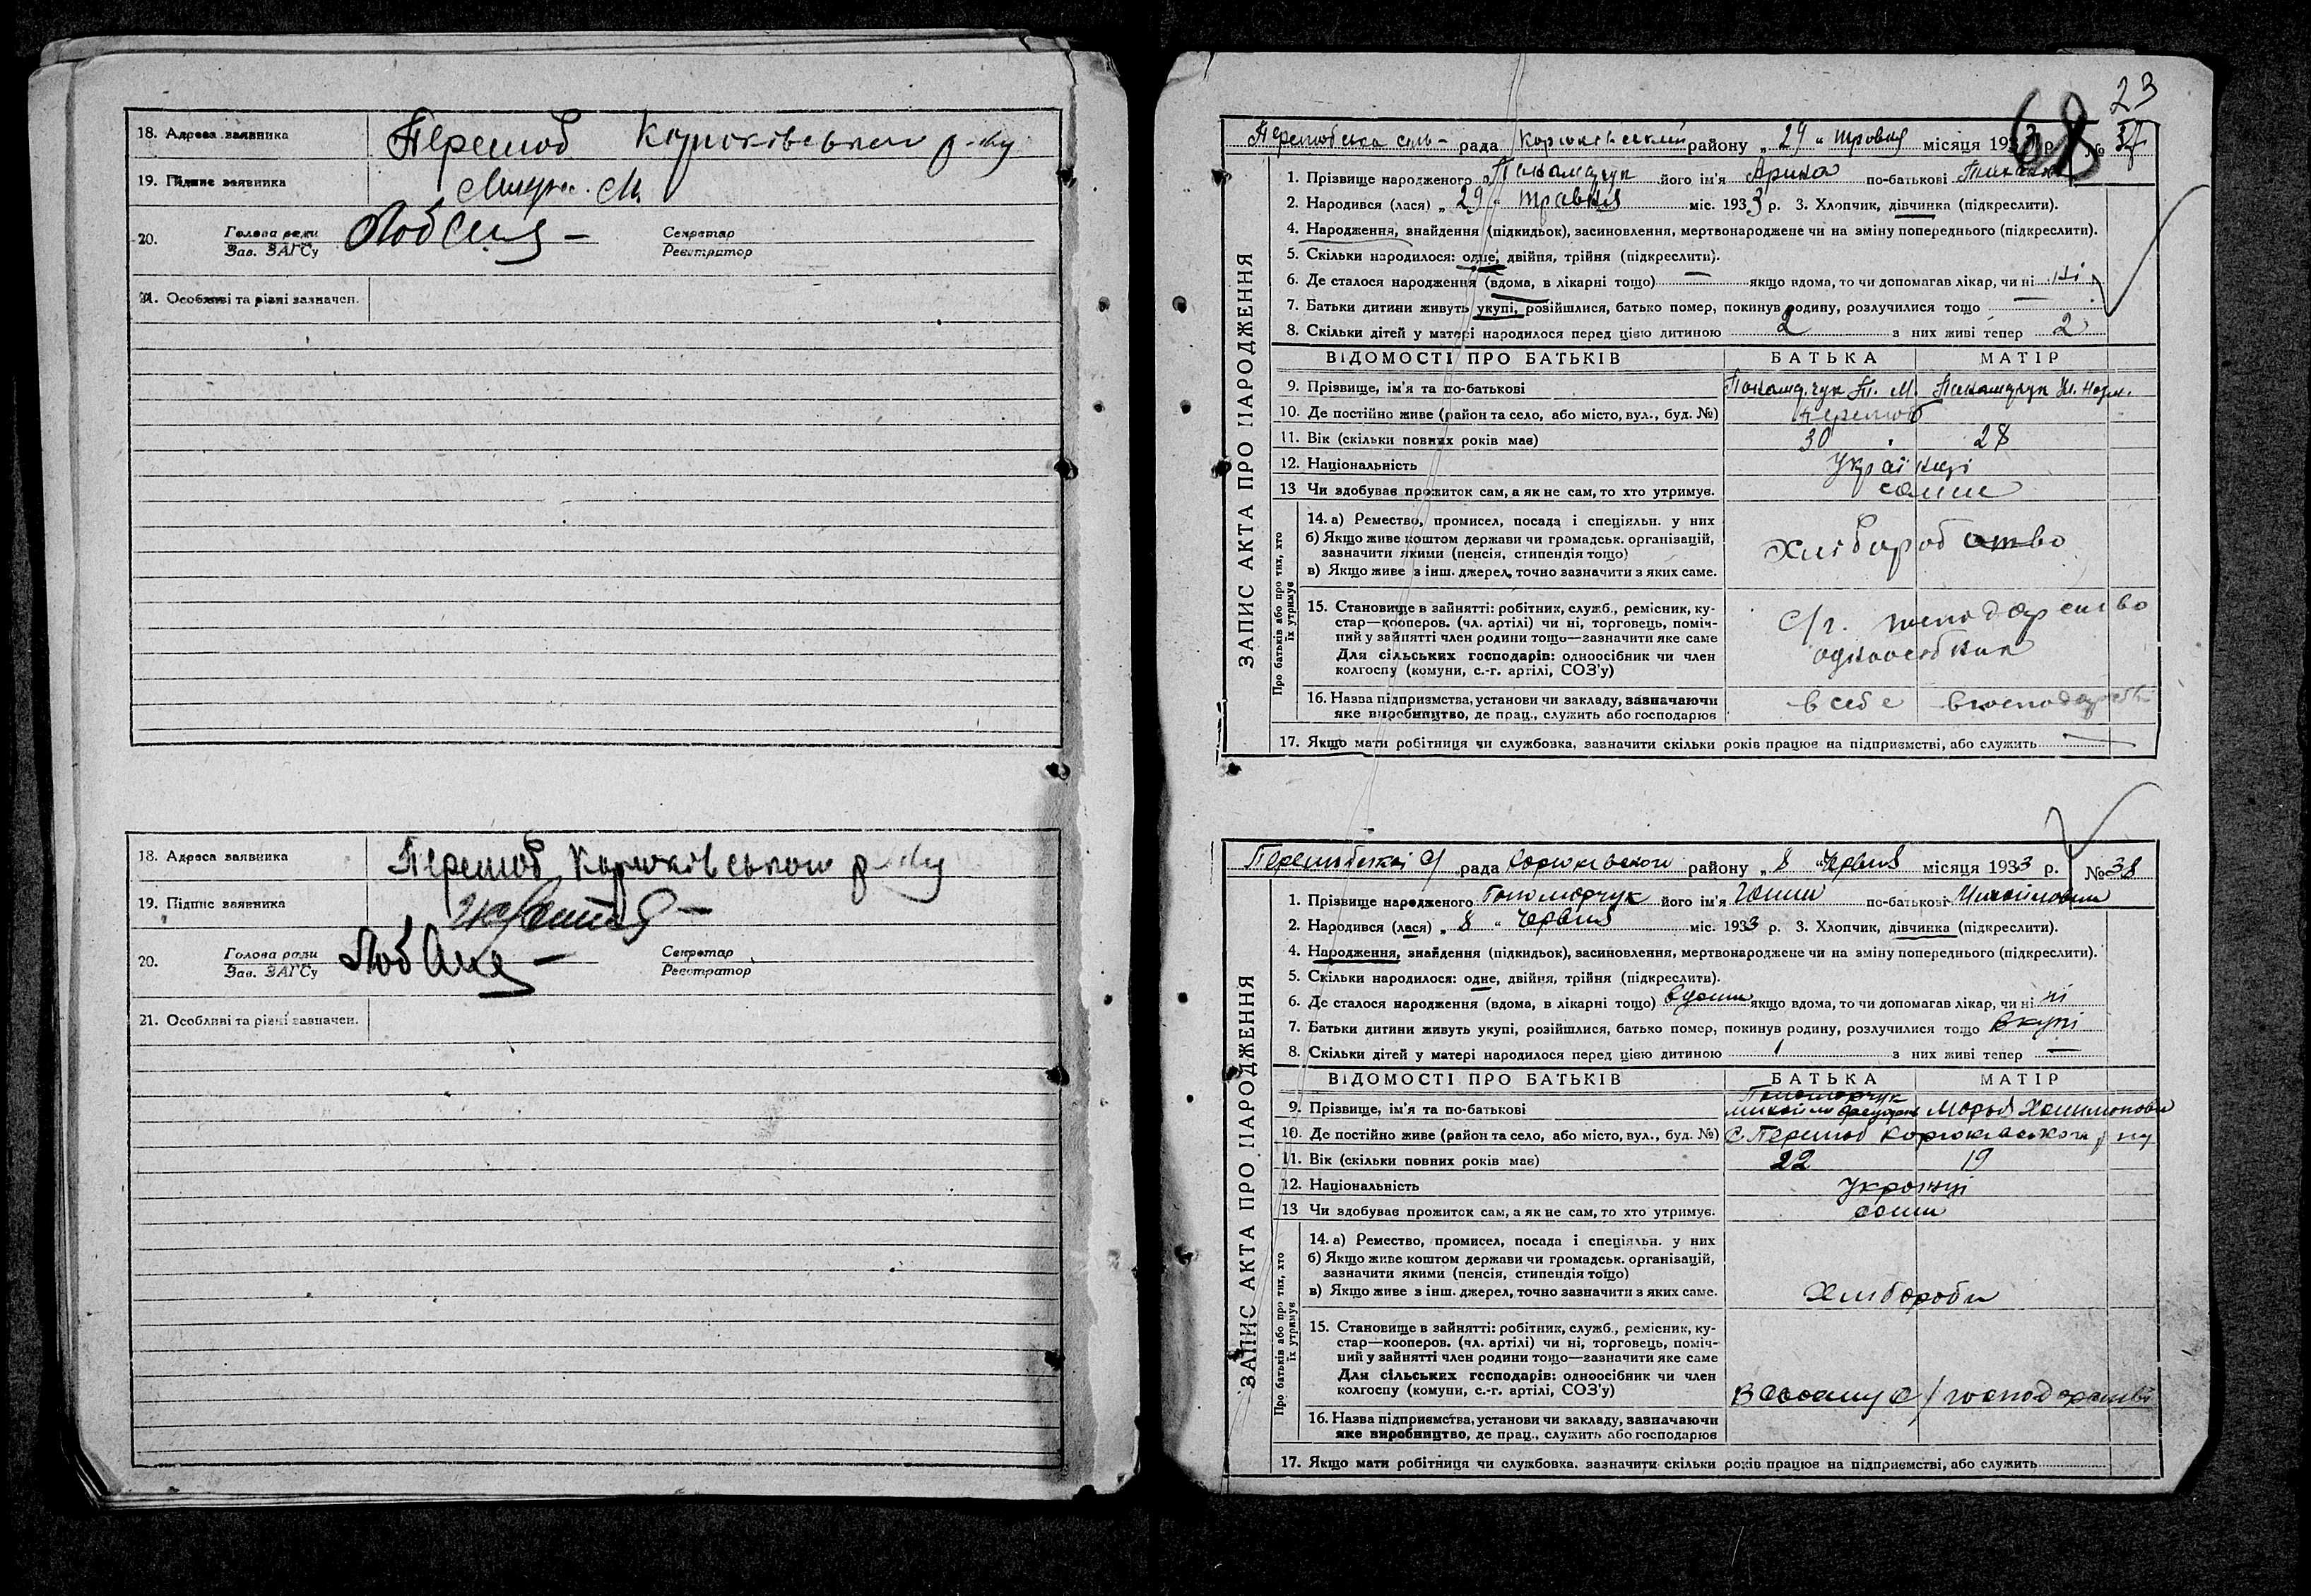 18. Адреса заявника Перелюб Корюківського р-ну
19. Підпис заявника
20. Голова ради Зав. ЗАГСу Секретар Реєстратор
21. Особливі та різні зазначен.
18. Адреса заявника Перелюб Корюківського р-ну
19. Підпис заявника
20. Голова ради Зав. ЗАГСу Секретар Реєстратор
21. Особливі та різні зазначен.
23
68
Перелюбська сіль- рада Корюківський району „ 29 “ травня місяця 1933 р. № 37
ЗАПИС АКТА ПРО НАРОДЖЕННЯ
1. Прізвище народженого його ім'я Арина по-батькові
2. Народився (лася) „ 29 “ травня міс. 1933 р. 3. Хлопчик, дівчинка (підкреслити).
4. Народження, знайдення (підкидьок), засиновлення, мертвонароджене чи на зміну попереднього (підкреслити).
5. Скільки народилося: одне, двійня, трійня (підкреслити).
6. Де сталося народження (вдома, в лікарні тощо) — якщо вдома, то чи допомагав лікар, чи ні ні
7. Батьки дитини живуть укупі, розійшлися, батько помер, покинув родину, розлучилися тощо
8. Скільки дітей у матері народилося перед цією дитиною 2 з них живі тепер 2
ВІДОМОСТІ ПРО БАТЬКІВ БАТЬКА МАТІР
9. Прізвище, ім'я та по-батькові
10. Де постійно живе (район та село, або місто, вул., буд. №) Перелюб
11. Вік (скільки повних років має) 30 28
12. Національність Українці
13 Чи здобуває прожиток сам, а як не сам, то хто утримує. сами
Про батьків або про тих, хто їх утримує
14. а) Ремество, промисел, посада і спеціяльн. у них
б) Якщо живе коштом держави чи громадськ. організацій,
зазначити якими (пенсія, стипендія тощо)
Хліборобство
в) Якщо живе з інш. джерел, точно зазначити з яких саме.
15. Становище в зайнятті: робітник, служб., ремісник, ку-
стар—кооперов. (чл. артілі) чи ні, торговець, поміч-
ний у зайнятті член родини тощо—зазначити яке саме
с/г. господарство
Для сільських господарів: одноосібник чи член
колгоспу (комуни, с.-г. артілі, СОЗ'у)
одноосібник
16. Назва підприємства, установи чи закладу, зазначаючи
яке виробництво, де прац., служить або господарює
в себе в господарстві
17. Якщо мати робітниця чи службовка, зазначити скільки років працює на підприємстві, або служить —
Перелюбської с/ рада Корюківського району „ 8 “ Червня місяця 1933 р. № 38
ЗАПИС АКТА ПРО НАРОДЖЕННЯ
1. Прізвище народженого Пономарчук його ім'я по-батькові
2. Народився (лася) „ 8 “ Червня міс. 1933 р. 3. Хлопчик, дівчинка (підкреслити).
4. Народження, знайдення (підкидьок), засиновлення, мертвонароджене чи на зміну попереднього (підкреслити).
5. Скільки народилося: одне, двійня, трійня (підкреслити).
6. Де сталося народження (вдома, в лікарні тощо) вдома якщо вдома, то чи допомагав лікар, чи ні ні
7. Батьки дитини живуть укупі, розійшлися, батько помер, покинув родину, розлучилися тощо вкупі
8. Скільки дітей у матері народилося перед цією дитиною 1 з них живі тепер —
ВІДОМОСТІ ПРО БАТЬКІВ БАТЬКА МАТІР
Пономарчук
9. Прізвище, ім'я та по-батькові
10. Де постійно живе (район та село, або місто, вул., буд. №) с. Перелюб Корюківського р ну
11. Вік (скільки повних років має) 22 19
12. Національність Українці
13 Чи здобуває прожиток сам, а як не сам, то хто утримує. сами
Про батьків або про тих, хто їх утримує
14. а) Ремество, промисел, посада і спеціяльн. у них
б) Якщо живе коштом держави чи громадськ. організацій,
зазначити якими (пенсія, стипендія тощо)
в) Якщо живе з інш. джерел, точно зазначити з яких саме.
Хлібороби
15. Становище в зайнятті: робітник, служб., ремісник, ку-
стар—кооперов. (чл. артілі) чи ні, торговець, поміч-
ний у зайнятті член родини тощо—зазначити яке саме
Для сільських господарів: одноосібник чи член
колгоспу (комуни, с.-г. артілі, СОЗ'у)
В своему с/господарстві
16. Назва підприємства, установи чи закладу, зазначаючи
яке виробництво, де прац., служить або господарює
17. Якщо мати робітниця чи службовка, зазначити скільки років працює на підприємстві, або служить